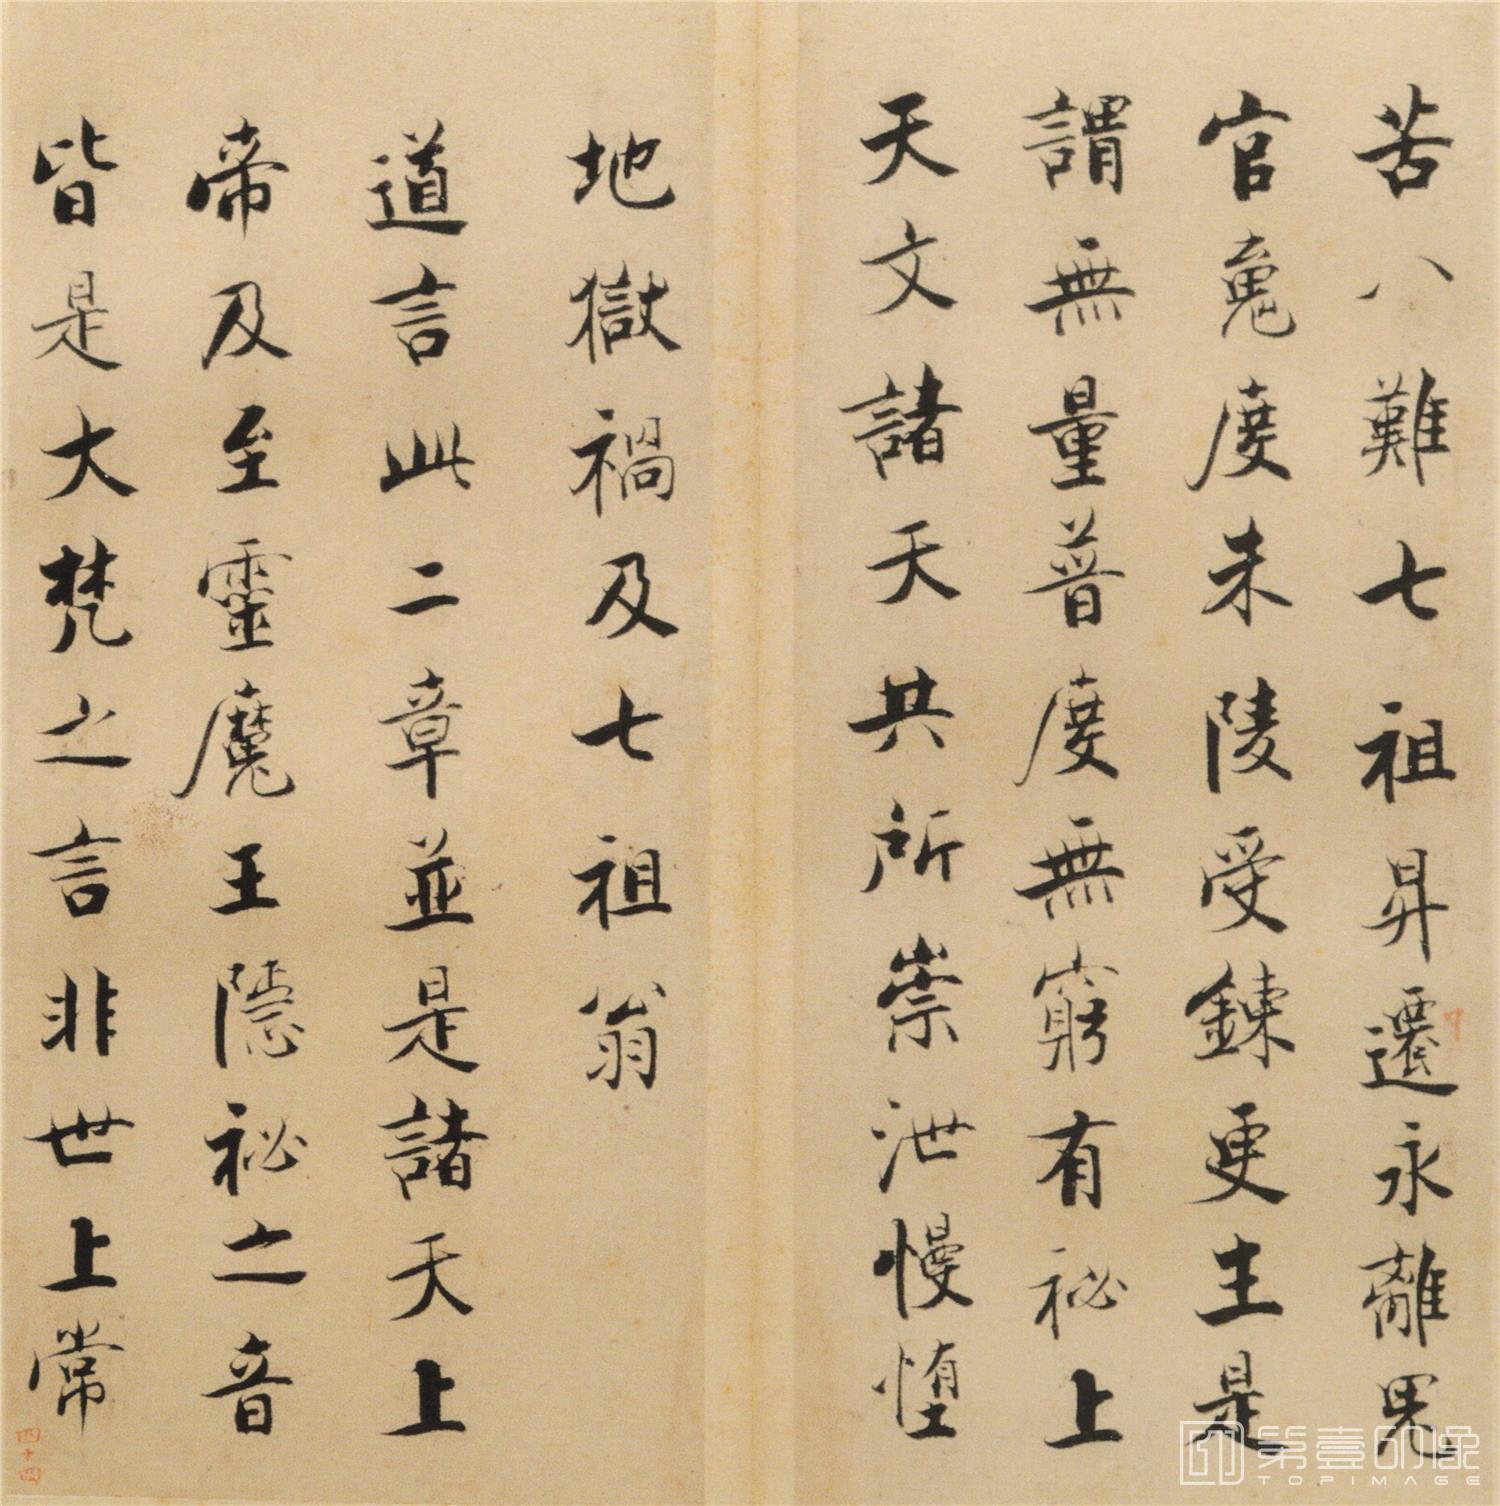 苦八難七祖昇遷永離男
官䰟度朱陵受鍊更生是
謂無量普度無窮有祕上
天文諸天共所崇泄慢墮
地獄禍及七祖翁
道言此二章並是諸天上
帝及至靈魔王隱祕之音
皆是大梵之言非世上常
四十四
第壹印象
TOPIMAGE